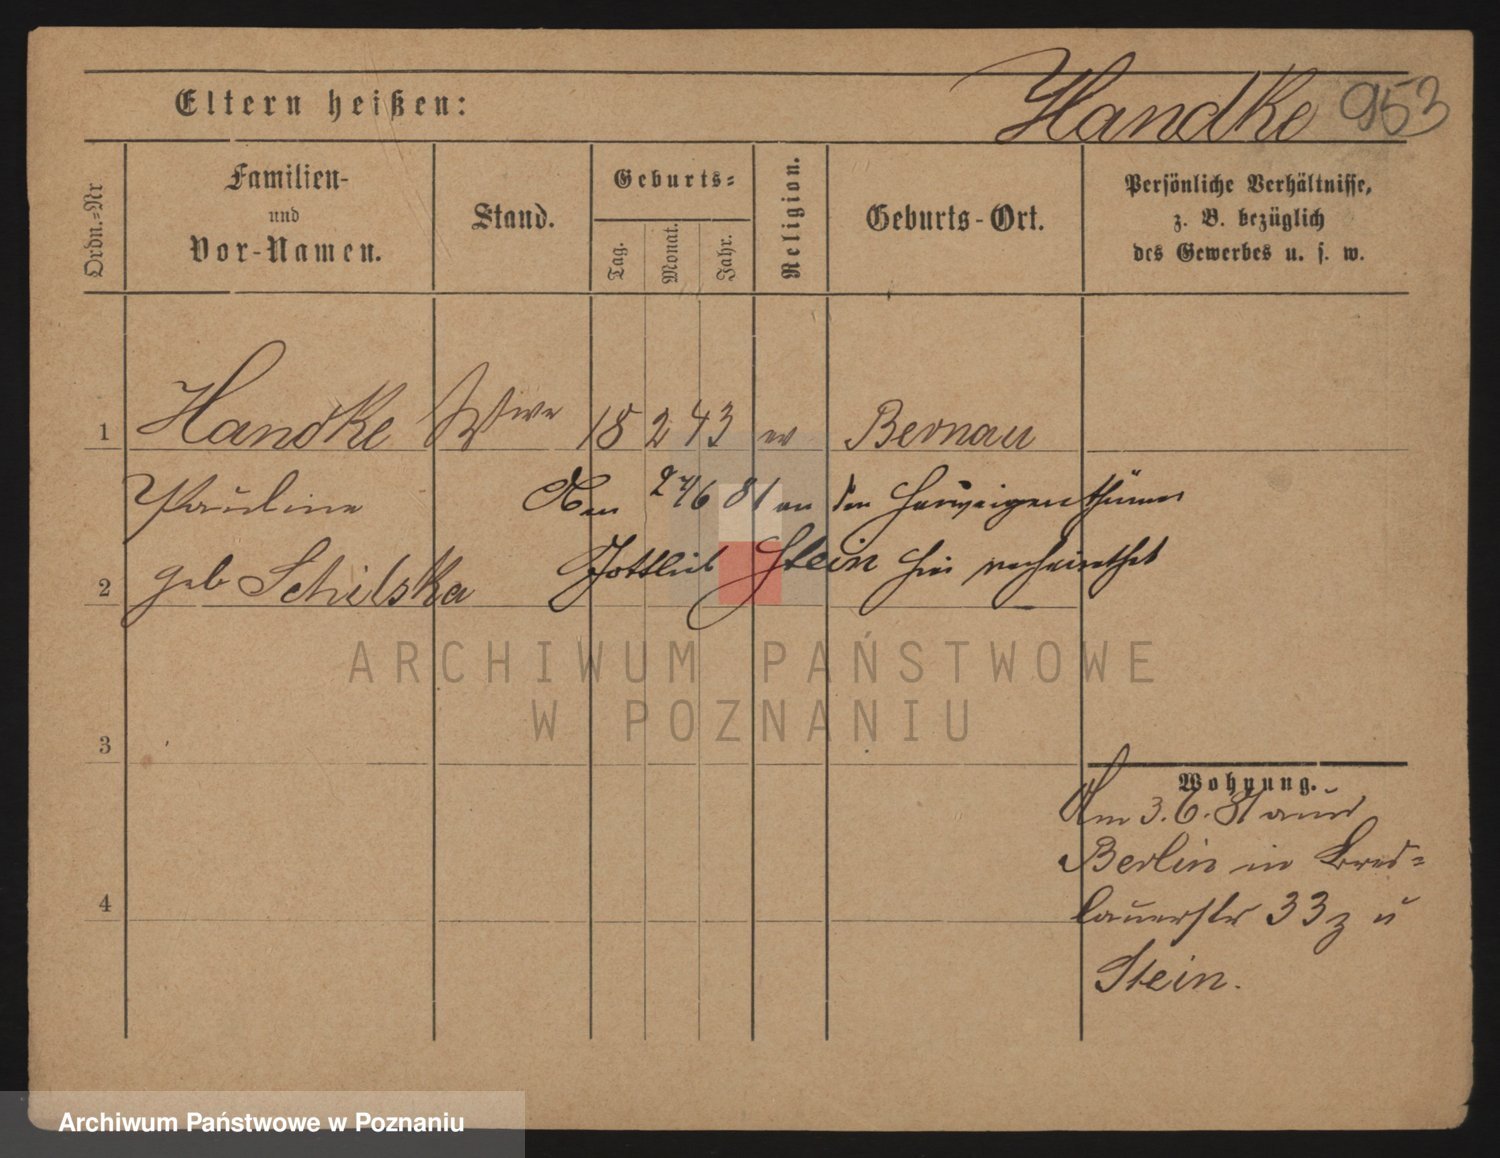 Eltern heißen:
Handke 953
Ordn.-Nr
Familien-
und
Vor-Namen.
Stand.
Geburts-
Tag.
Monat.
Jahr.
Religion.
Geburts-Ort.
Persönliche Verhältnisse,
z. B. bezüglich
des Gewerbes u. s. w.
1 Handke Wwe 18 2 43 ev Bernau
Pauline
Am 24/6 81 an den Hauseigenthümer
2 geb Schilska
Gottlieb Stein hier verheirathet
ARCHIWUM PAŃSTWOWE
W POZNANIU
3
Wohnung.
Am 3.6.81 aus
Berlin in Bres=
4
lauerstr 33 z u
Stein.
Archiwum Państwowe w Poznaniu